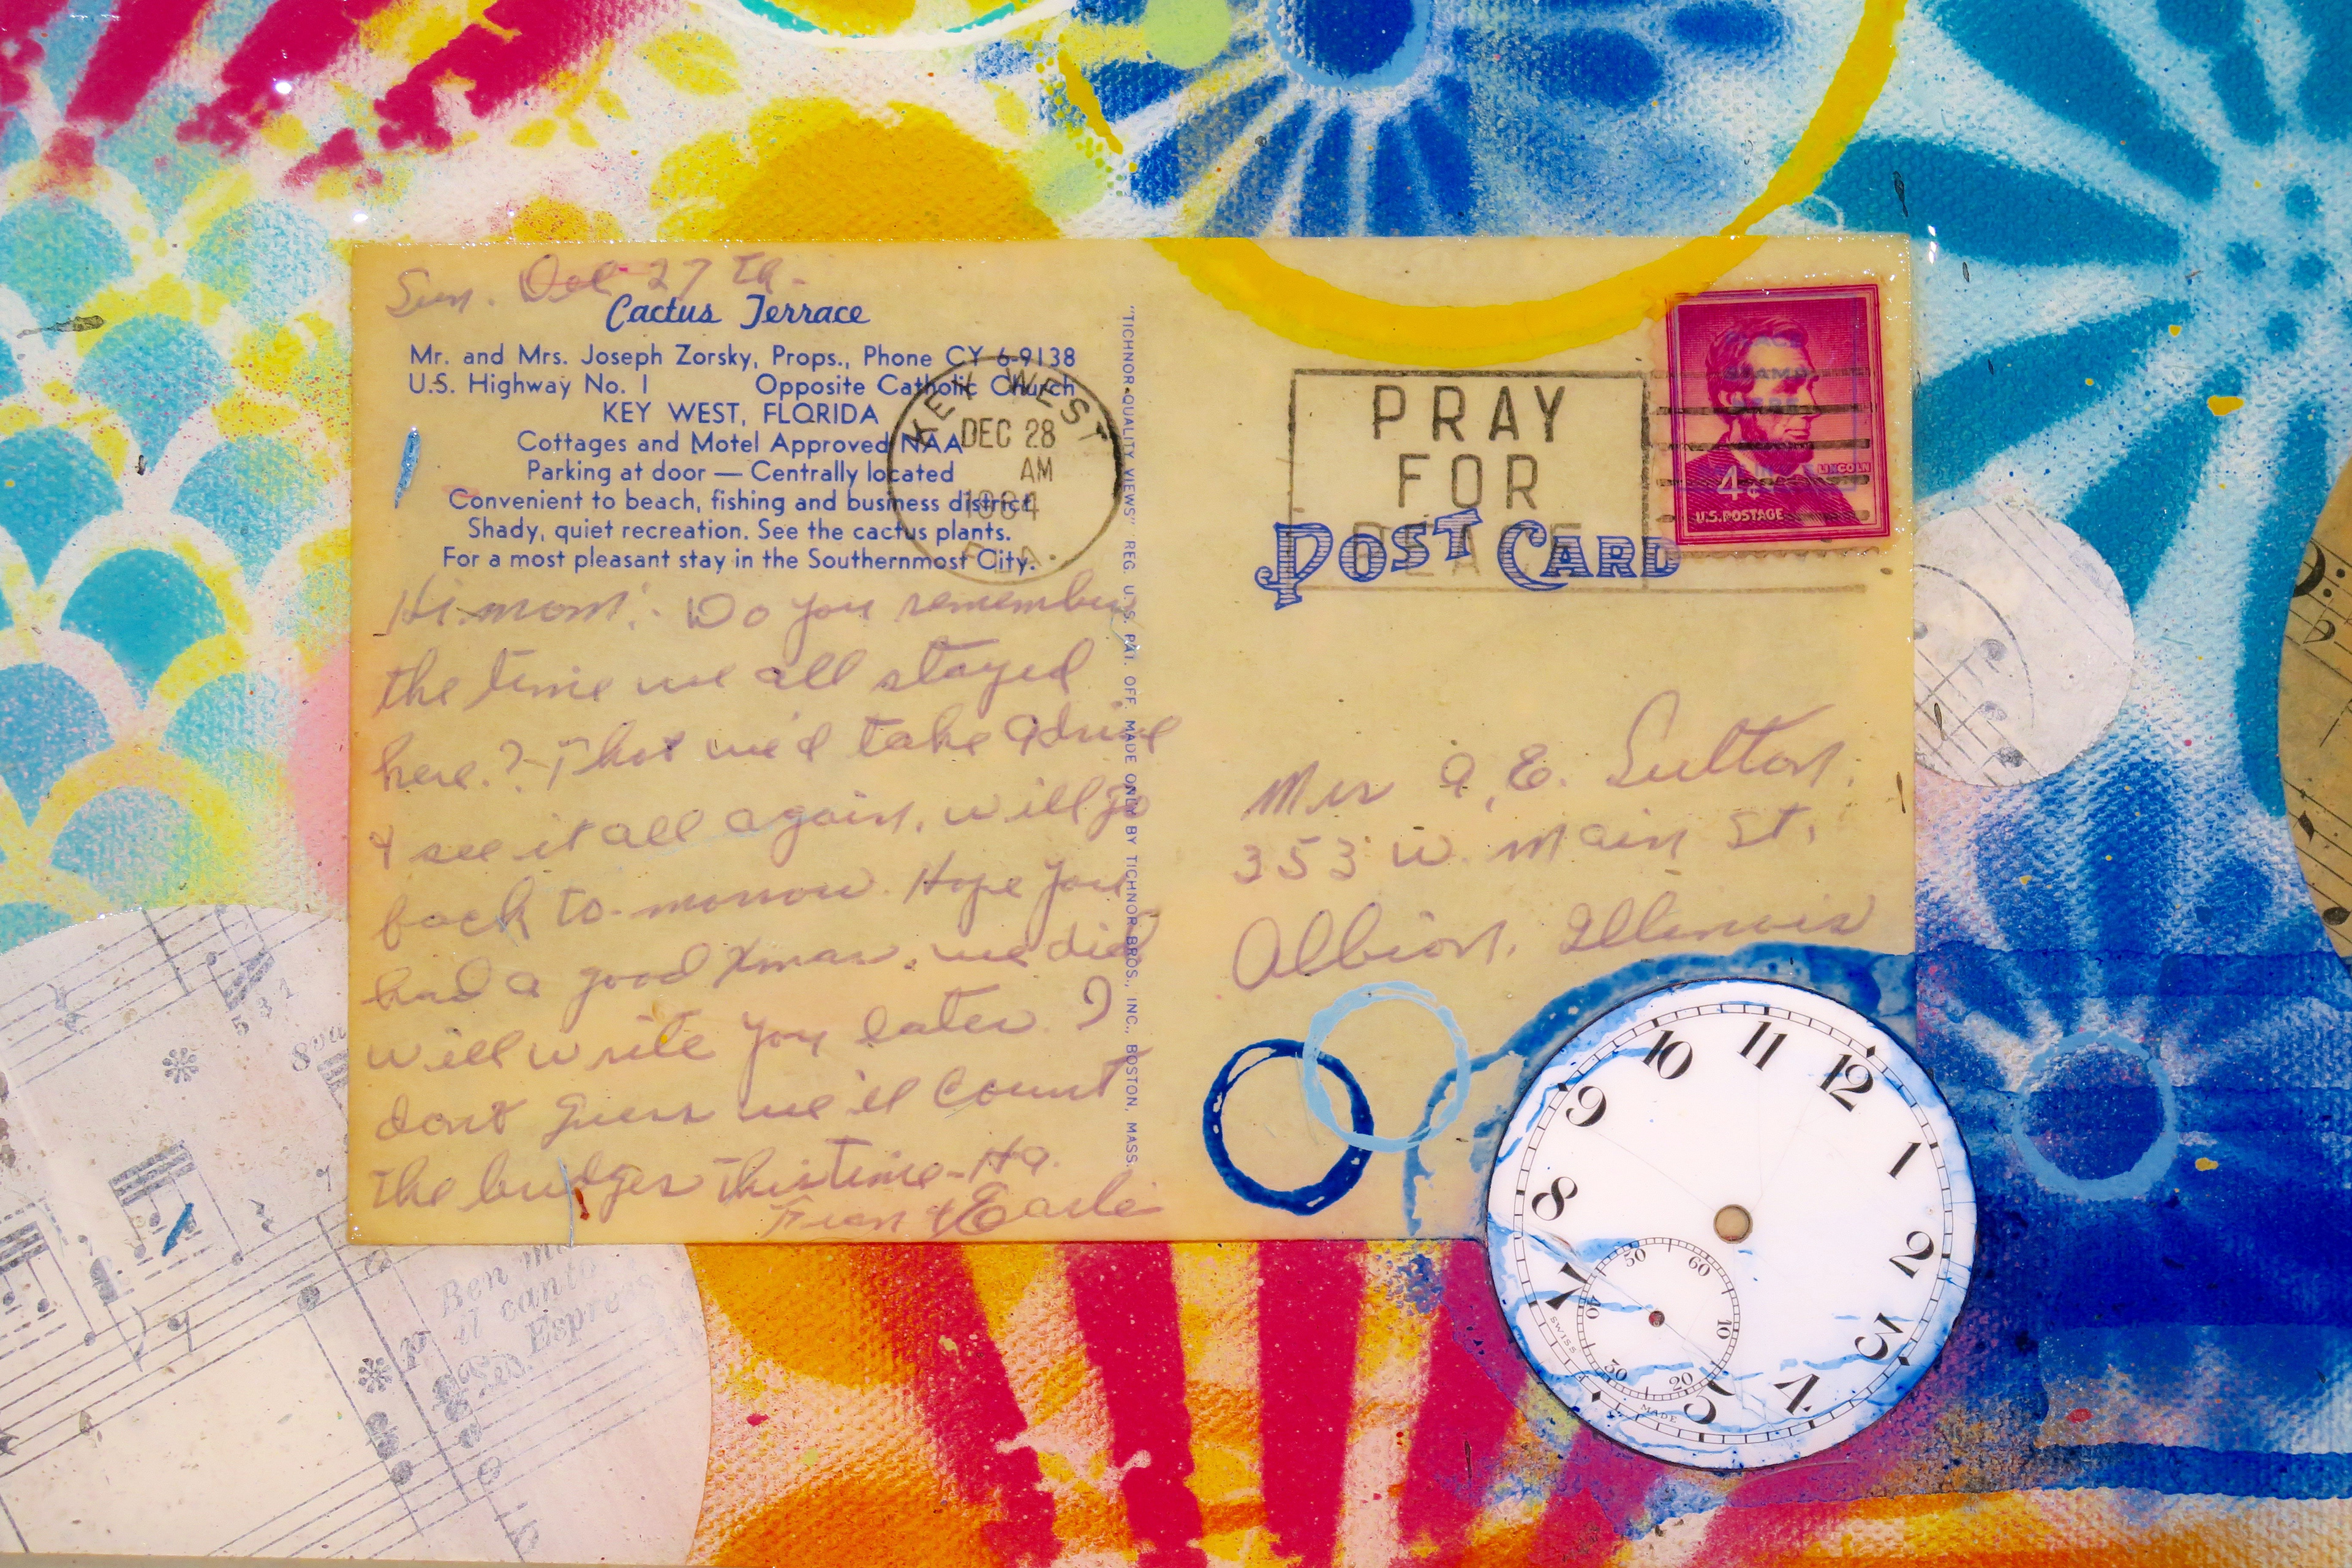 Sun. Dec 27 th.
Cactus Terrace
Mr. and Mrs. Joseph Zorsky, Props., Phone CY 6-9138
U.S. Highway No. 1 Opposite Catholic Church
KEY WEST, FLORIDA
Cottages and Motel Approved NAA
Parking at door — Centrally located
Convenient to beach, fishing and business district.
Shady, quiet recreation. See the cactus plants.
For a most pleasant stay in the Southernmost City.
KEY WEST
DEC 28
AM
1964
FLA.
Hi mom: Do you remember
the time we all stayed
here.? Thot we'd take a drive
& see it all again, will go
back to-morrow. Hope you
had a good Xmas, we did
will write you later I
dont guess we'll count
the bridges this time - Ha.
Fran & Earle
"TICHNOR QUALITY VIEWS" REG. U. S. PAT. OFF. MADE ONLY BY TICHNOR BROS., INC., BOSTON, MASS.
PRAY
FOR
PEACE
POST CARD
LINCOLN
4¢
U.S. POSTAGE
Mrs A. E. Sutton.
353 W. Main St.
Albion, Illinois
10 11 12
9 1
8 2
7 3
5 4
60
50
10
40
20
30
SWISS
MADE
8va
5 3 1
7
Ben
il canto
P